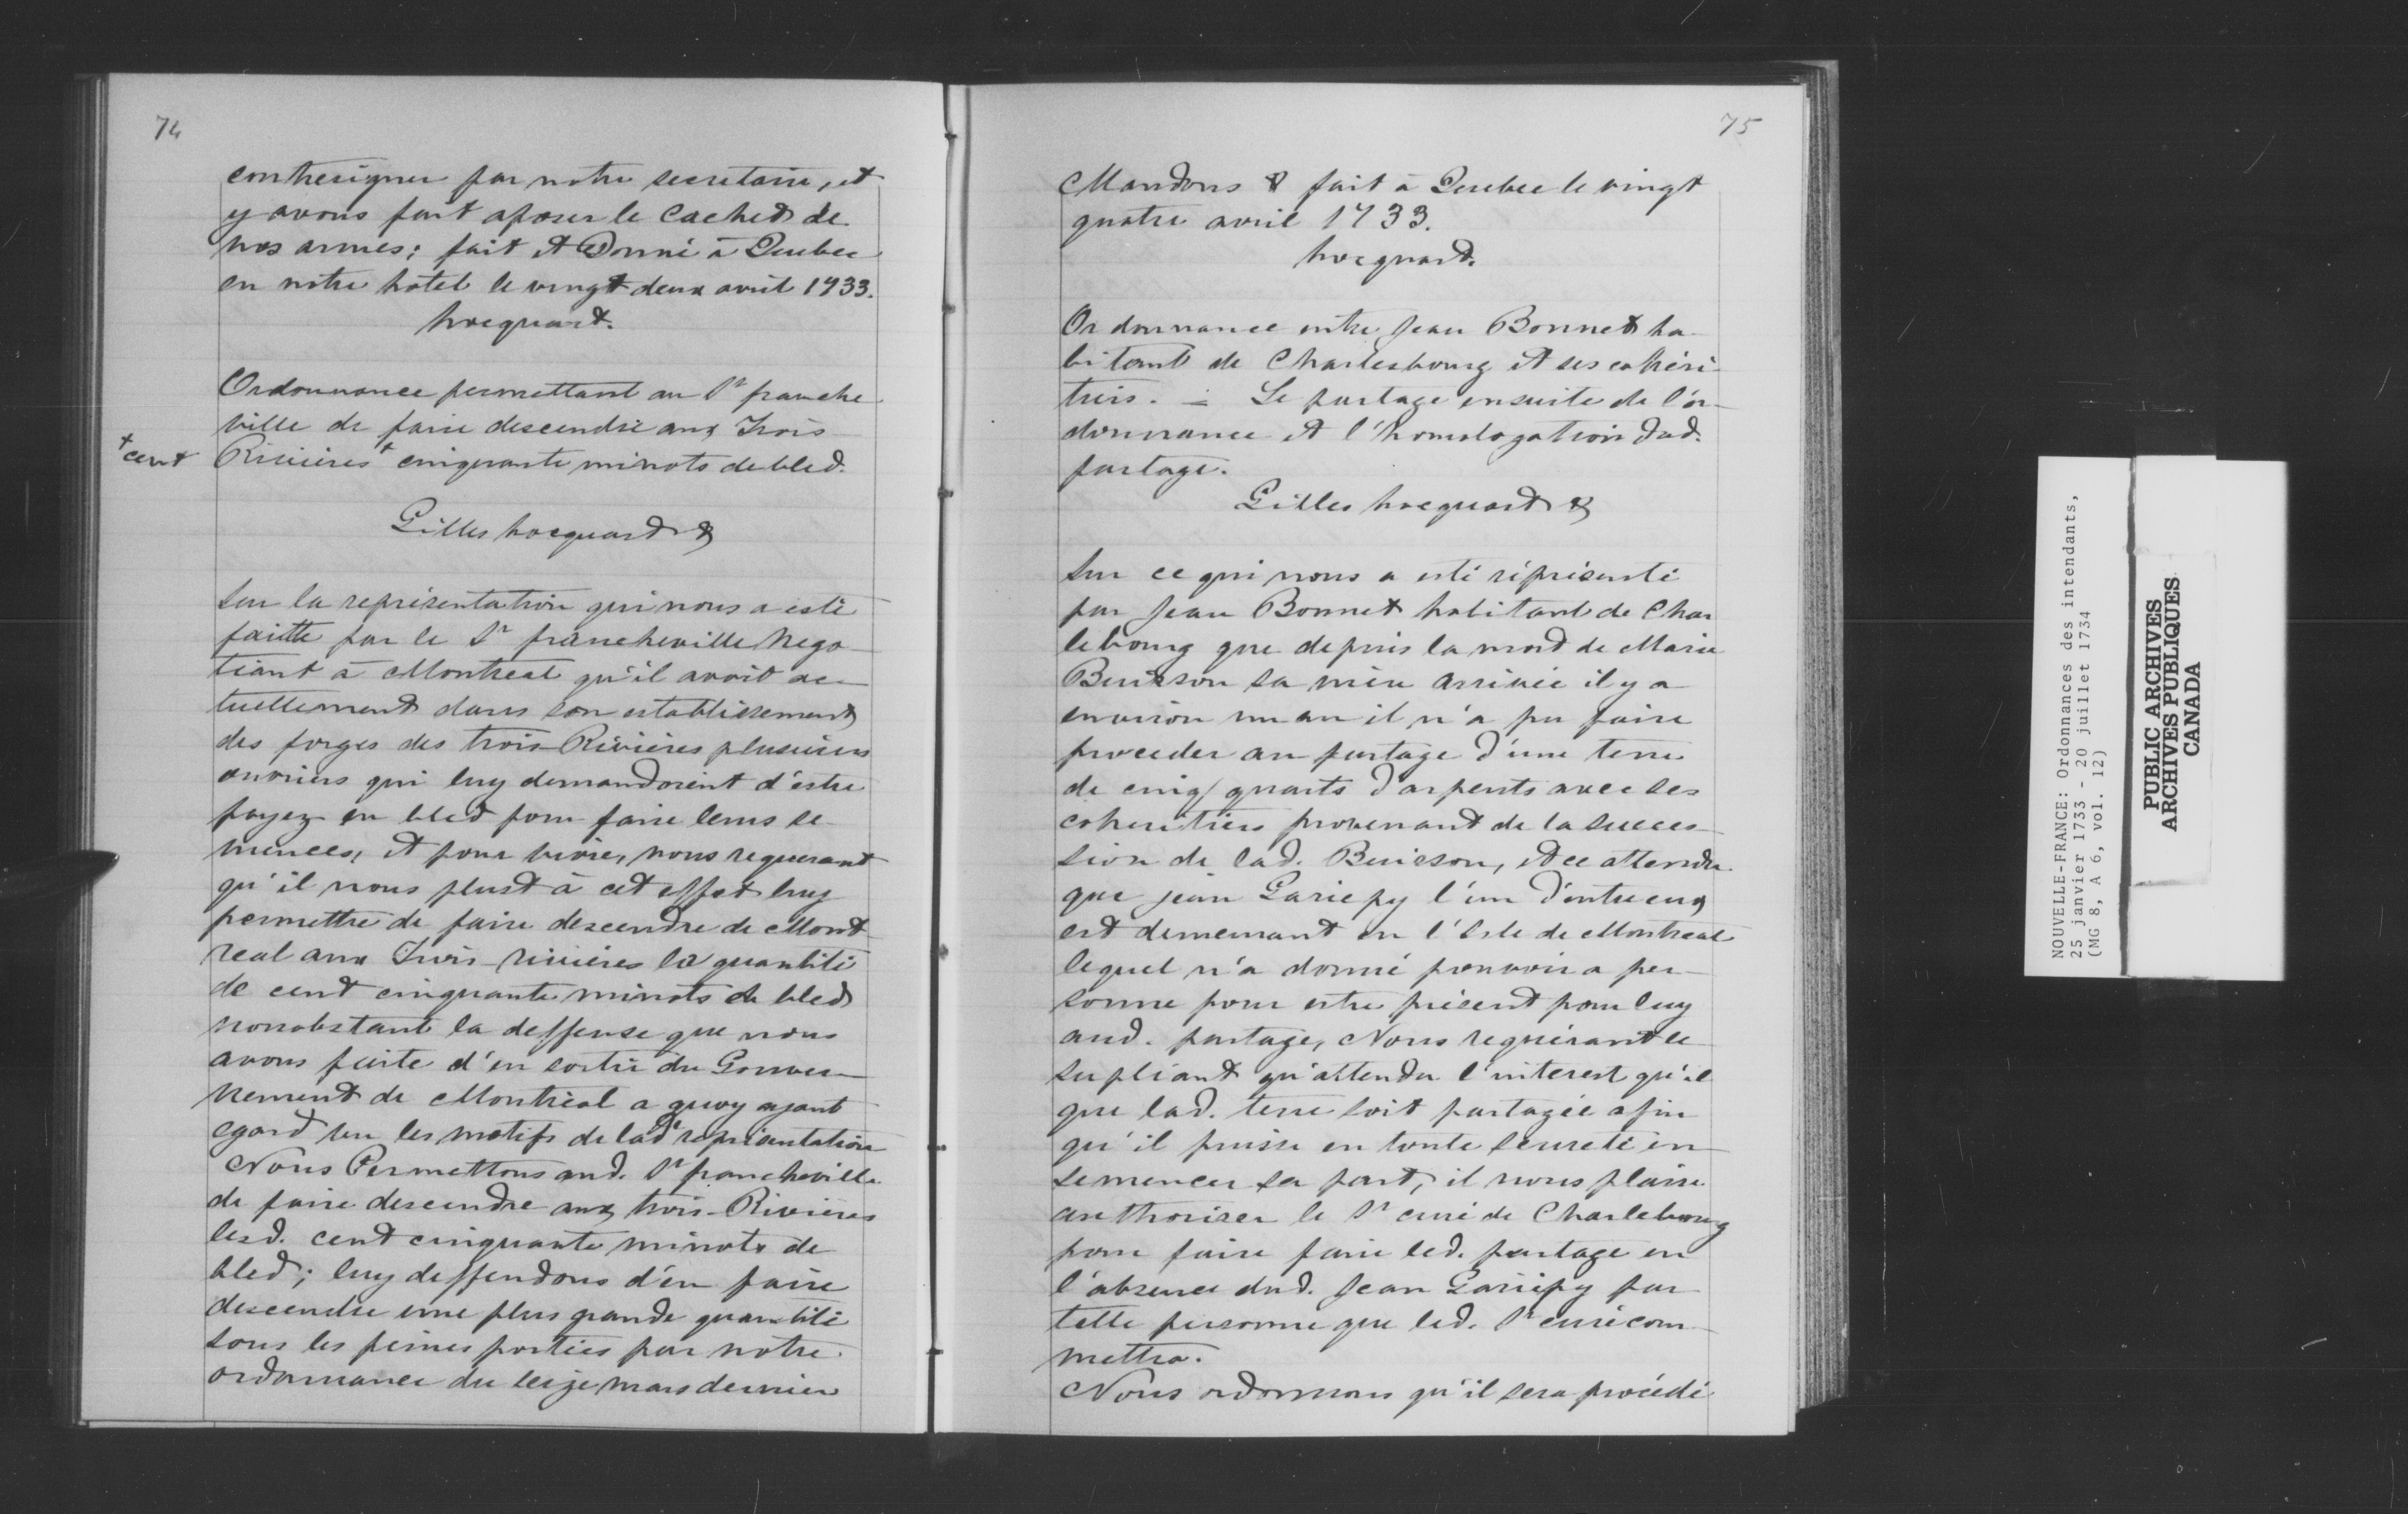 74
contresigner par notre secretaire, et
y avons fait aposer le Cachet de
nos armes; fait et Donné à Quebec
en notre hotel le vingt deux avril 1733.
hocquart.
Ordonnance permettant au Sr franche
ville de faire descendre aux Trois
Rivières + cinquante minots de bled.
+ cent
Gilles hocquart &
Sur la représentation qui nous a esté
faitte par le Sr francheville Nego-
tiant à Montreal qu'il avoit ac-
tuellement dans son establissement
des forges des trois Rivières plusieurs
ouvriers qui luy demandoient d'estre
payez en bled pour faire leurs se-
mences, et pour vivre, nous requerant
qu'il nous plust à cet effet luy
permettre de faire descendre de Mont
real aux Trois-rivières la quantité
de cent cinquante minots de bled
nonobstant la deffense que nous
avons faite d'en sortir du Gouver-
nement de Montréal a quoy ayant
egard vu les motifs de lade représentation
Nous Permettons aud. Sr francheville
de faire descendre aux trois-Rivières
lesd. cent cinquante minots de
bled; luy deffendons d'en faire
descendre une plus grande quantité
sous les peines portées par notre
ordonnance du seize mars dernier
75
Mandons & fait à Quebec le vingt
quatre avril 1733.
hocquart.
Ordonnance entre Jean Bonnet ha-
bitant de Charlesbourg et ses cohéri-
tiers. = Le partage ensuite de l'or-
donnance et l'homologation dud.
partage.
Gilles hocquart &
Sur ce qui nous a esté réprésenté
par Jean Bonnet habitant de Char
lebourg que depuis la mort de Marie
Buisson sa mère arrivée il y a
environ un an il n'a pu faire
proceder au partage d'une terre
de cinq quarts d'arpents avec ses
coheritiers provenant de la succes-
sion de lad. Buisson, et ce attendu
que jean Gariepy l'un d'entreux
est demeurant en l'isle de Montreal
lequel n'a donné pouvoir a per-
sonne pour estre présent pour luy
aud. partage, Nous requérant le
supliant qu'attendu l'interest qu'il
que lad. terre soit partagée afin
qu'il puisse en toute seureté en-
semencer sa part, il nous plaise
authoriser le Sr curé de Charlebourg
pour faire faire led. partage en
l'absence dud. Jean Gariépy par
telle personne que led. Sr curé com-
mettra.
Nous ordonnons qu'il sera procédé
NOUVELLE-FRANCE: Ordonnances des intendants,
25 janvier 1733 - 20 juillet 1734
(MG 8, A 6, vol. 12)
PUBLIC ARCHIVES
ARCHIVES PUBLIQUES
CANADA